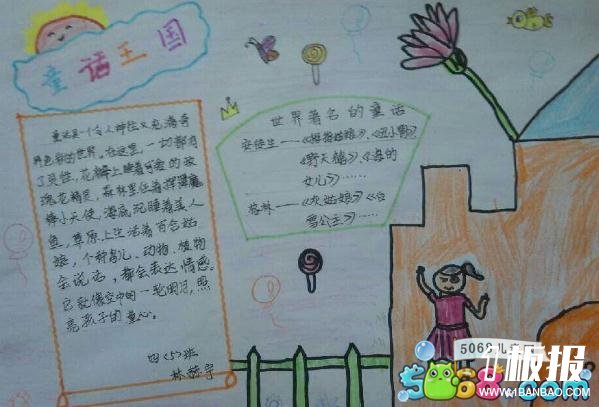 童话王国
童话是一个令人神往又充满奇
异色彩的世界。在这里，一切都有
了灵性，花瓣上睡着可爱的玫
瑰花精灵，森林里住着挥舞魔
棒小天使，海底沉睡着美人
鱼，草原上生活着百合姑
娘，个种鸟儿、动物、植物
会说话，都会表达情感。
它就像空中的一轮明月，照
亮孩子的童心。
四〈5〉班
世界著名的童话
安徒生——《拇指姑娘》、《丑小鸭》
《野天鹅》《海的
女儿》……
格林——《灰姑娘》《白
雪公主》……
5068儿童网
板报
5068.com
www.41BANBAO.com